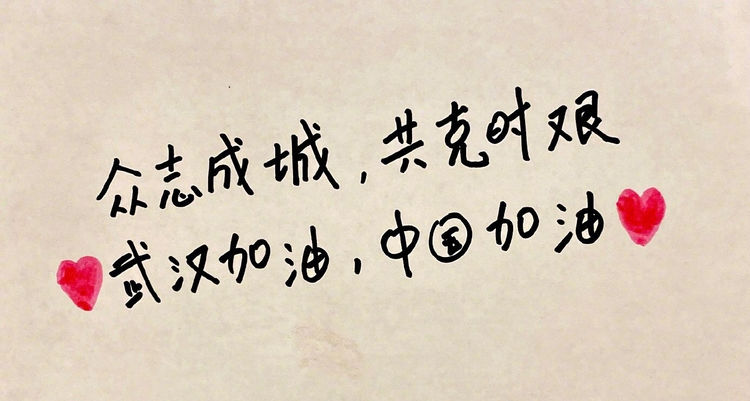 众志成城，共克时艰
武汉加油，中国加油